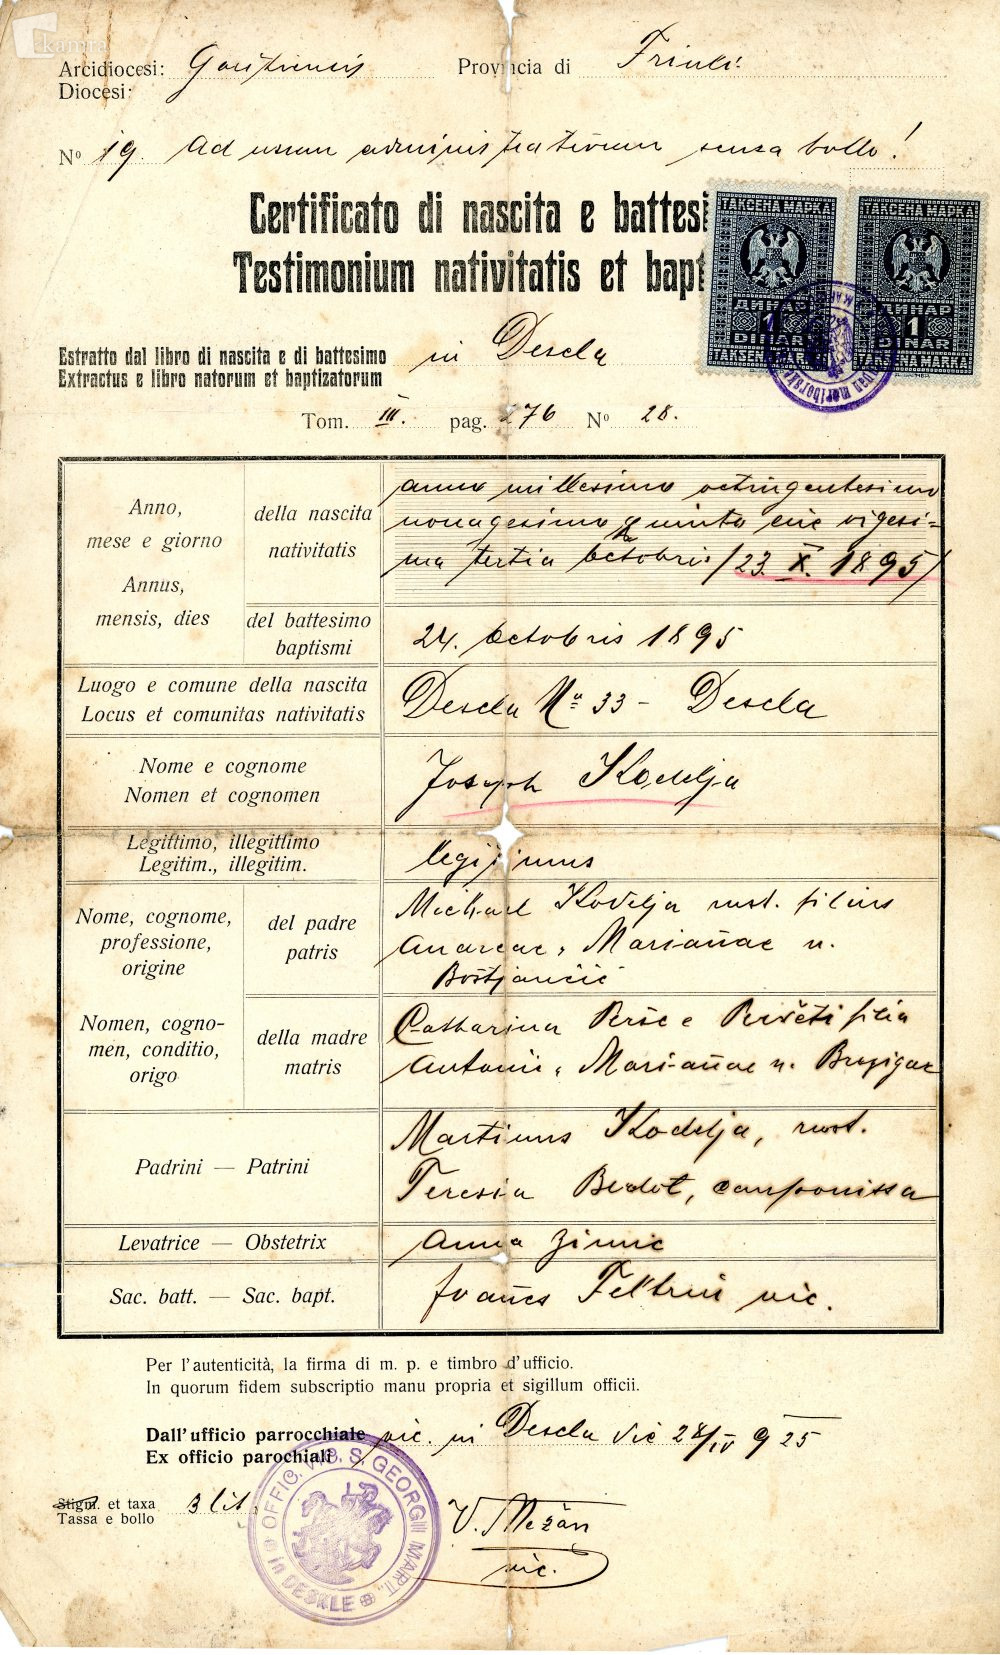 kamra
Arcidiocesi: Goritiensis Provincia di Friuli
Diocesi:
Nº 19. Ad usum administrationum senza bollo!
Certificato di nascita e battesi
Testimonium nativitatis et bapt
ТАКСЕНА МАРКА ТАКСЕНА МАРКА
ДИНАР ДИНАР
1 1
DINAR DINAR
TAKSENA MARKA TAKSENA MARKA
Estratto dal libro di nascita e di battesimo in Descla
Extractus e libro natorum et baptizatorum
Tom. III. pag. 276 Nº 28.
Anno, mese e giorno
Annus, mensis, dies
della nascita
nativitatis
anno millesimo octingentesimo
nonagesimo quinto die vigesi-
ma tertia octobris /23. X. 1895/
del battesimo
baptismi
24. octobris 1895
Luogo e comune della nascita
Locus et comunitas nativitatis
Descla Nº 33 - Descla
Nome e cognome
Nomen et cognomen
Joseph Kodelja
Legittimo, illegittimo
Legitim., illegitim.
legitimus
Nome, cognome,
professione,
origine
del padre
patris
Michael Kodelja rust. filius
Andreae, Mariañae n.
Boštjančič
Nomen, cogno-
men, conditio,
origo
della madre
matris
Catharina Perše e filia
Antonii, Mariañae n.
Padrini — Patrini
Martinus Kodelja, rust.
Teresia
Levatrice — Obstetrix
Anna Zimic
Sac. batt. — Sac. bapt.
Joañes Feltrin vic.
Per l'autenticità, la firma di m. p. e timbro d'ufficio.
In quorum fidem subscriptio manu propria et sigillum officii.
Dall'ufficio parrocchiale vic. in Descla die 28/IV 925
Ex officio parochiali
Stigm. et taxa 3 lit.
Tassa e bollo
OFFIC. S. GEORGII MART. in DESKLE
V. Mežan
vic.